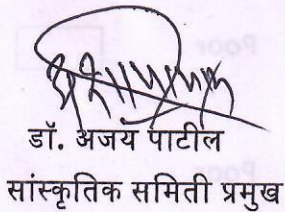 डॉ. अजय पाटील
सांस्कृतिक समिती प्रमुख